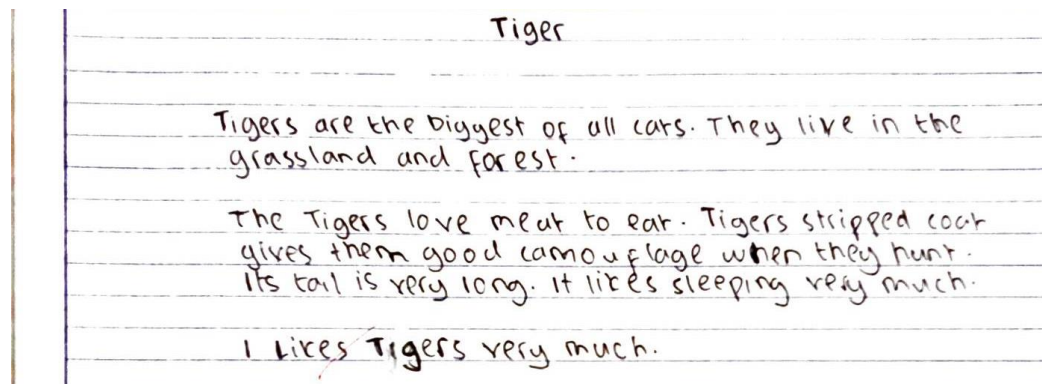 Tiger
Tigers are the biggest of all cats. They live in the
grassland and forest.
The Tigers love meat to eat. Tigers stripped coat
gives them good camouflage when they hunt.
Its tail is very long. It likes sleeping very much.
I Likes Tigers very much.